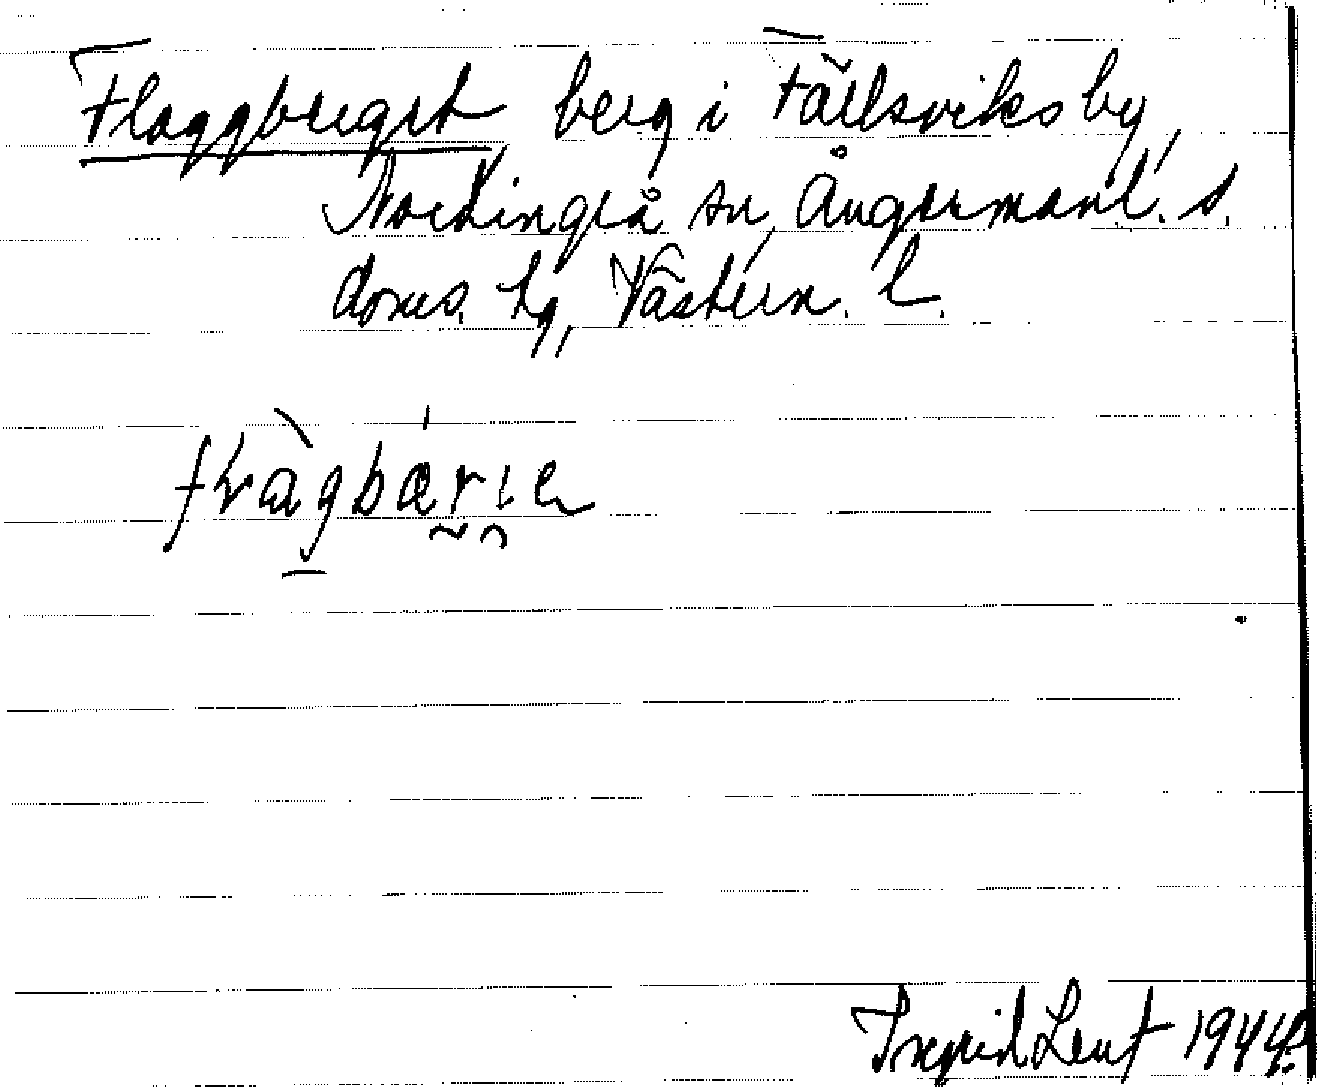 Flaggberget berg i Fällsviks by,
Nordingrå sn, Ångermanl. s.
doms. tg, Västern. l.
Ingrid Leuf 1944.